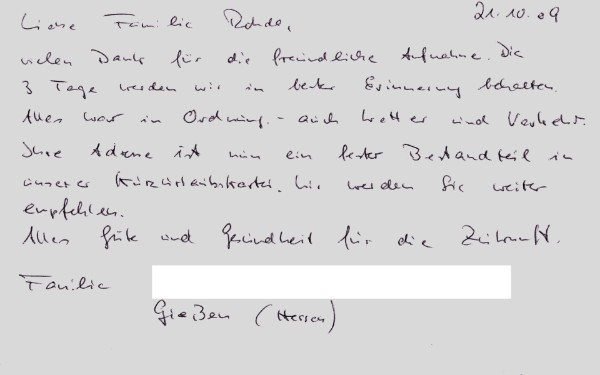 Liebe Familie Rohde, 21.10.09
vielen Dank für die freundliche Aufnahme. Die
3 Tage werden wir in bester Erinnerung behalten.
Alles war in Ordnung - auch Wetter und Verkehr.
Ihre Adresse ist nun ein fester Bestandteil in
unserer Kurzurlaubskartei. Wir werden Sie weiter
empfehlen.
Alles Gute und Gesundheit für die Zukunft.
Familie
Gießen (Hessen)